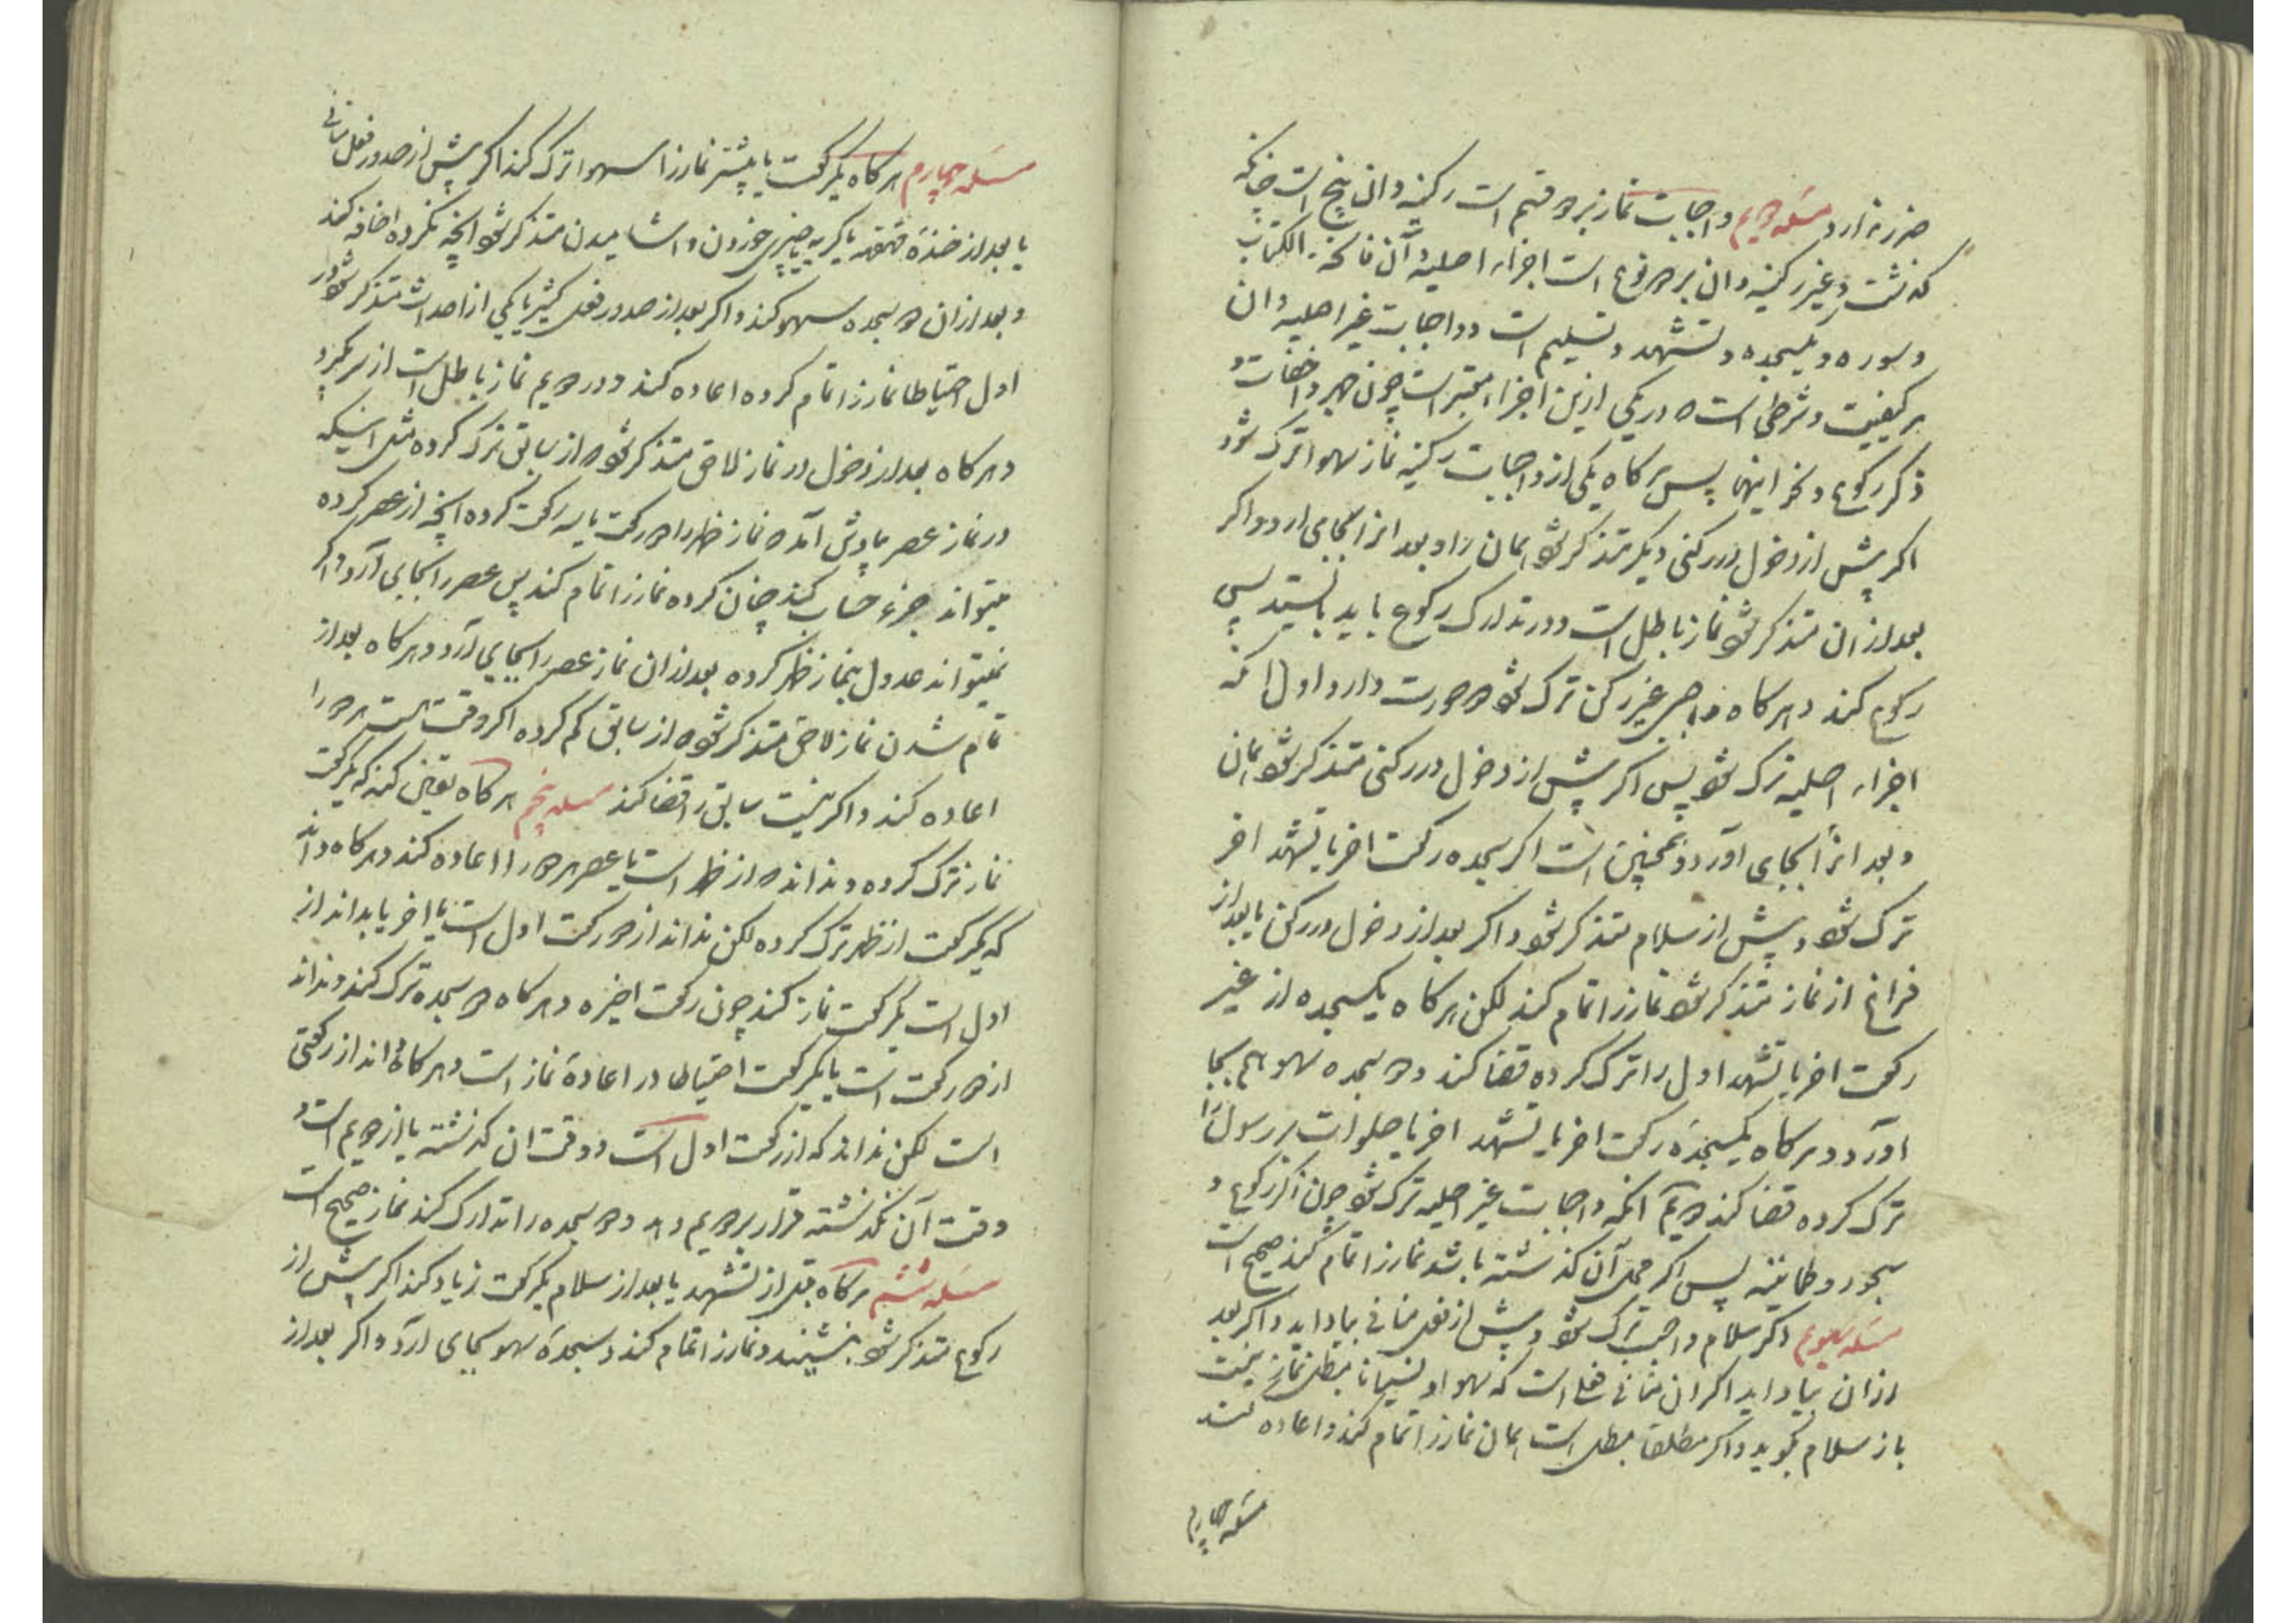 ضرر ندارد مسئله دویم واجبات نماز بر دو قسم است رکنیه وان پنج است چنانکه
گذشت وغیر رکنیه وان بر دو نوع است اجزاء اصلیه آن فاتحة الکتاب
و سوره و یکسجده و تشهد و تسلیم است و واجبات غیر اصلیه وان
هر کیفیت وشرطی است که در یکی ازین اجزاء معتبر است چون جهر واخفات و
ذکر رکوع ونحو اینها پس هرکاه یکی از واجبات رکنیه نماز سهوا ترک شود
اکر پیش از دخول در رکنی دیکر متذکر شود همان را و بعد انرا بجای ارد و اکر
بعد از ان متذکر شود نماز باطل است و در تدارک رکوع باید بایستد پس
رکوع کند و هرکاه واجبی غیر رکن ترک شود دو صورت دارد اول آنکه
اجزاء اصلیه ترک شود پس اکر پیش از دخول در رکنی متذکر شود همان
و بعد انرا بجای اورد و همچنین است اکر سجده رکعت اخر یا تشهد اخر
ترک شود و پیش از سلام متذکر شود و اکر بعد از دخول در رکن یا بعد از
فراغ از نماز متذکر شود نماز را تمام کند لکن هرکاه یکسجده از غیر
رکعت اخر یا تشهد اول را ترک کرده قضا کند و دو سجده سهو هم بجا
اورد و هرکاه یکسجده رکعت اخر یا تشهد اخر یا صلوات بر رسول را
ترک کرده قضا کند دویم انکه واجبات غیر اصلیه ترک شود چون ذکر رکوع و
سجود و طمانینه پس اکر محل آن کذشته باشد نماز را تمام کند صحیح است
مسئله سیوم اکر سلام واجب ترک شود و پیش از فعل منافی بیاد اید واکر بعد
از ان بیاد اید اکر ان منافی فعلی است که سهوا و نسیانا مبطل نماز نیست
باز سلام بکوید و اکر مطلقا مبطل است همان نماز را تمام کند و اعاده کند
مسئله چهارم
مسئله چهارم هرکاه یکرکعت یا بیشتر نماز را سهوا ترک کند اکر پیش از صدور فعل منافی
یا بعد از خنده قهقهه یا کریه یا چیزی خوردن و اشامیدن متذکر شود انچه نکرده اضافه کند
و بعد از ان دو سجده سهو کند و اکر بعد از صدور فعل کثیر یا یکی از احداث متذکر شود در
اول احتیاطا نماز را تمام کرده اعاده کند و در دویم نماز باطل است از سر بکیرد
و هرکاه بعد از دخول در نماز لاحق متذکر شود که از سابق ترک کرده مثل اینکه
در نماز عصر یادش آمد که نماز ظهر را دو رکعت یا سه رکعت کرده انچه از عصر کرده
میتواند جزء حساب کند چنان کرده نماز را تمام کند پس عصر را بجای آرد و اکر
نمیتواند عدول بنماز ظهر کرده بعد از ان نماز عصر را بجای آرد و هرکاه بعد از
تمام شدن نماز لاحق متذکر شود که از سابق کم کرده اکر وقت هست هر دو را
اعاده کند و اکر نیست سابق را قضا کند مسئله پنجم هرکاه یقین کند که یکرکعت
نماز ترک کرده و نداند که از ظهر است یا عصر هر دو را اعاده کند و هرکاه داند
که یکرکعت از ظهر ترک کرده لکن نداند از دو رکعت اول است یا اخر یا بداند از
اول است یکرکعت نماز کند چون رکعت اخیره و هرکاه دو سجده ترک کند و نداند
از دو رکعت است یا یکرکعت احتیاط در اعاده نماز است و هرکاه داند از رکعتی
است لکن نداند که از رکعت اول است و وقت ان کذشته یا از دویم است و
وقت آن نکذشته قرار بر دویم دهد و دو سجده را تدارک کند نماز صحیح است
مسئله ششم هرکاه قبل از تشهد یا بعد از سلام یکرکعت زیاد کند اکر پیش از
رکوع متذکر شود بنشیند و نماز را تمام کند و سجده سهو بجای آرد و اکر بعد از